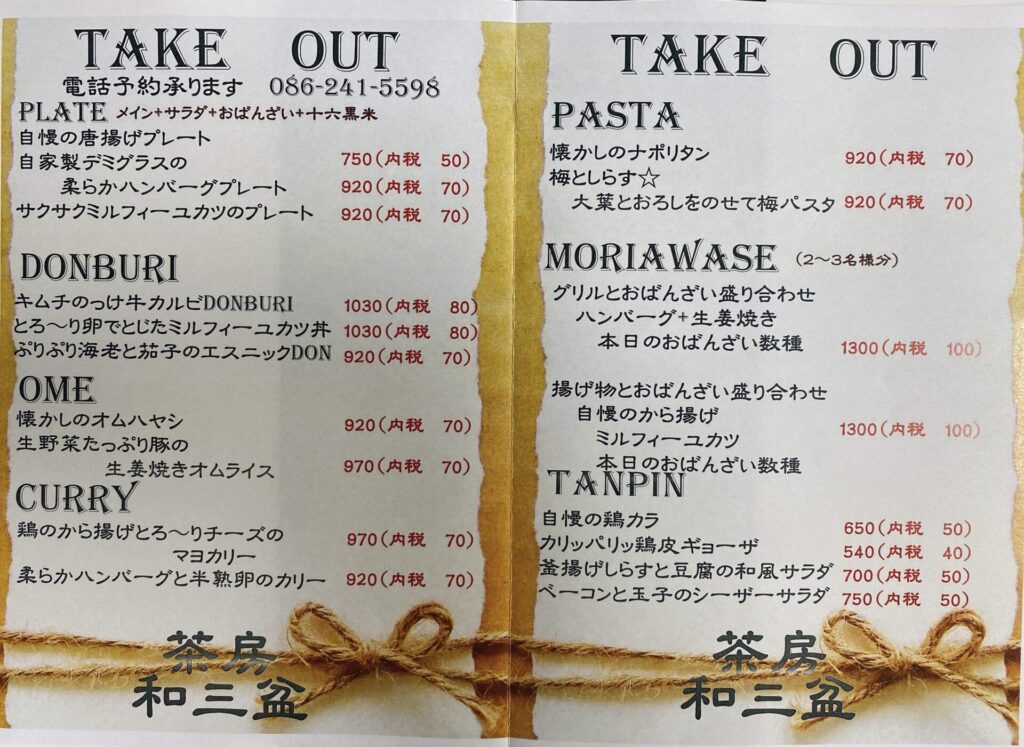 TAKE OUT
電話予約承ります 086-241-5598
PLATE メイン+サラダ+おばんざい+十六黒米
自慢の唐揚げプレート 750(内税 50)
自家製デミグラスの
柔らかハンバーグプレート 920(内税 70)
サクサクミルフィーユカツのプレート 920(内税 70)
DONBURI
キムチのっけ牛カルビDONBURI 1030(内税 80)
とろ～り卵でとじたミルフィーユカツ丼 1030(内税 80)
ぷりぷり海老と茄子のエスニックDON 920(内税 70)
OME
懐かしのオムハヤシ 920(内税 70)
生野菜たっぷり豚の
生姜焼きオムライス 970(内税 70)
CURRY
鶏のから揚げとろ～りチーズの 970(内税 70)
マヨカリー
柔らかハンバーグと半熟卵のカリー 920(内税 70)
茶房
和三盆
TAKE OUT
PASTA
懐かしのナポリタン 920(内税 70)
梅としらす☆
大葉とおろしをのせて梅パスタ 920(内税 70)
MORIAWASE (2～3名様分)
グリルとおばんざい盛り合わせ
ハンバーグ+生姜焼き
本日のおばんざい数種 1300(内税 100)
揚げ物とおばんざい盛り合わせ
自慢のから揚げ
ミルフィーユカツ 1300(内税 100)
本日のおばんざい数種
TANPIN
自慢の鶏カラ 650(内税 50)
カリッパリッ鶏皮ギョーザ 540(内税 40)
釜揚げしらすと豆腐の和風サラダ 700(内税 50)
ベーコンと玉子のシーザーサラダ 750(内税 50)
茶房
和三盆